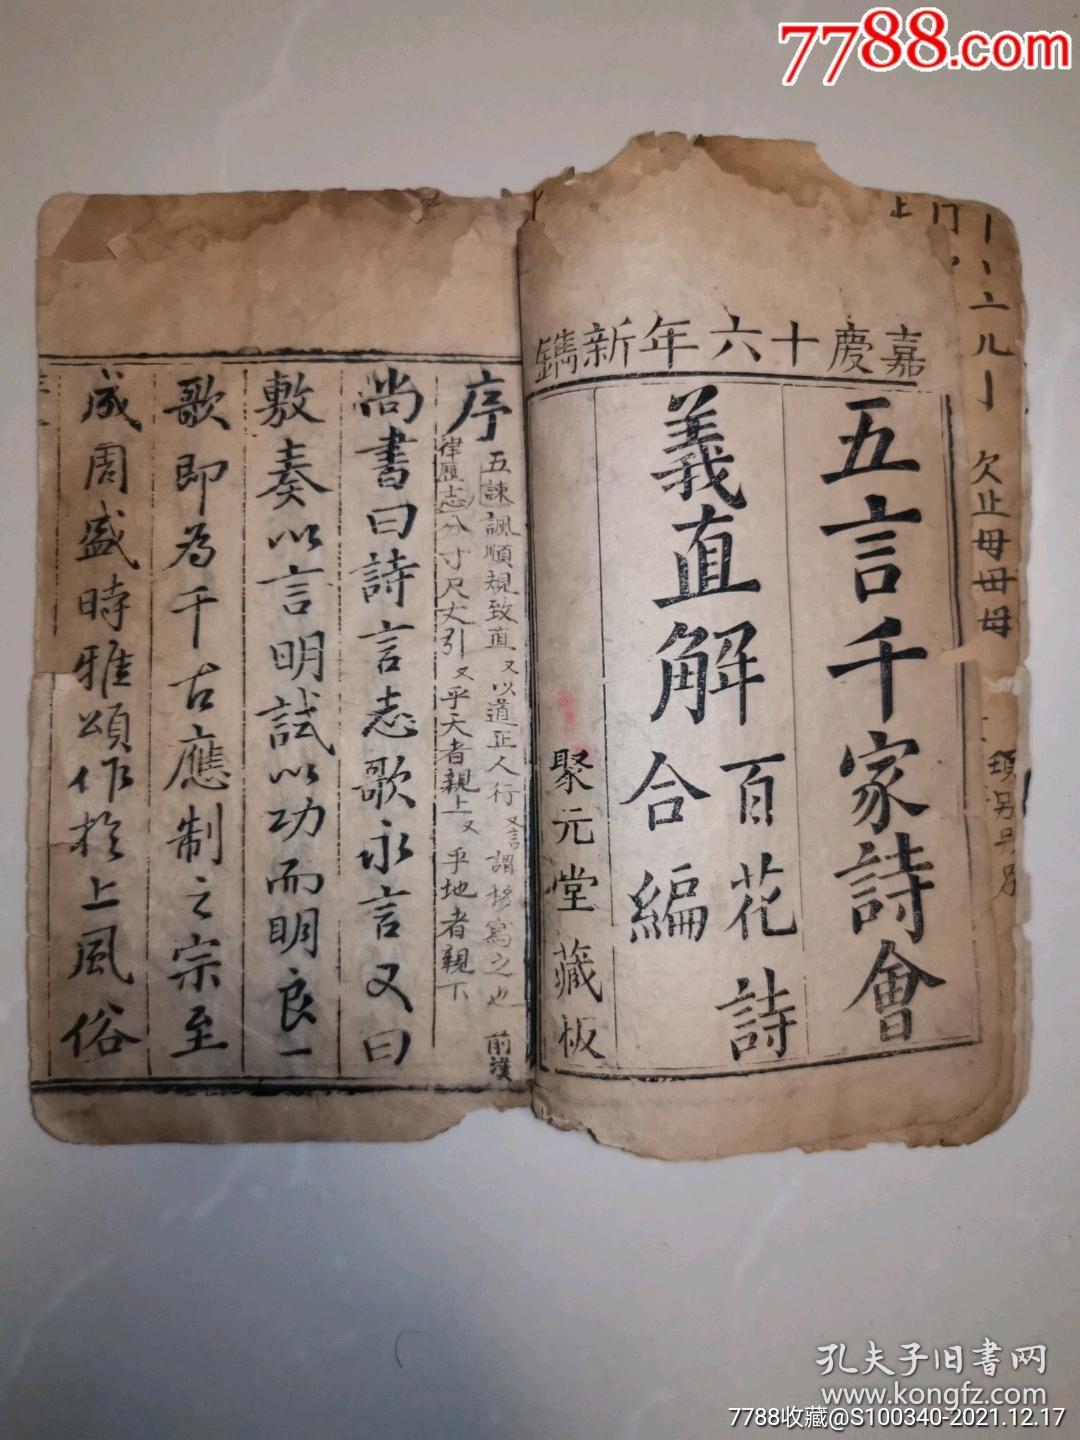 7788.com
嘉慶十六年新鐫
五言千家詩會
義直解
百花詩
合編
聚元堂藏板
欠止毋毌母
序
五諫諷順規致直又以道正人行又言謂移寫之也 前漢
律歷志分寸尺丈引又乎天者親上又乎地者親下
尚書曰詩言志歌永言又曰
敷奏以言明試以功而明良一
歌即為千古應制之宗至
成周盛時雅頌作於上風俗
孔夫子旧書网
www.kongfz.com
7788收藏@S100340-2021.12.17